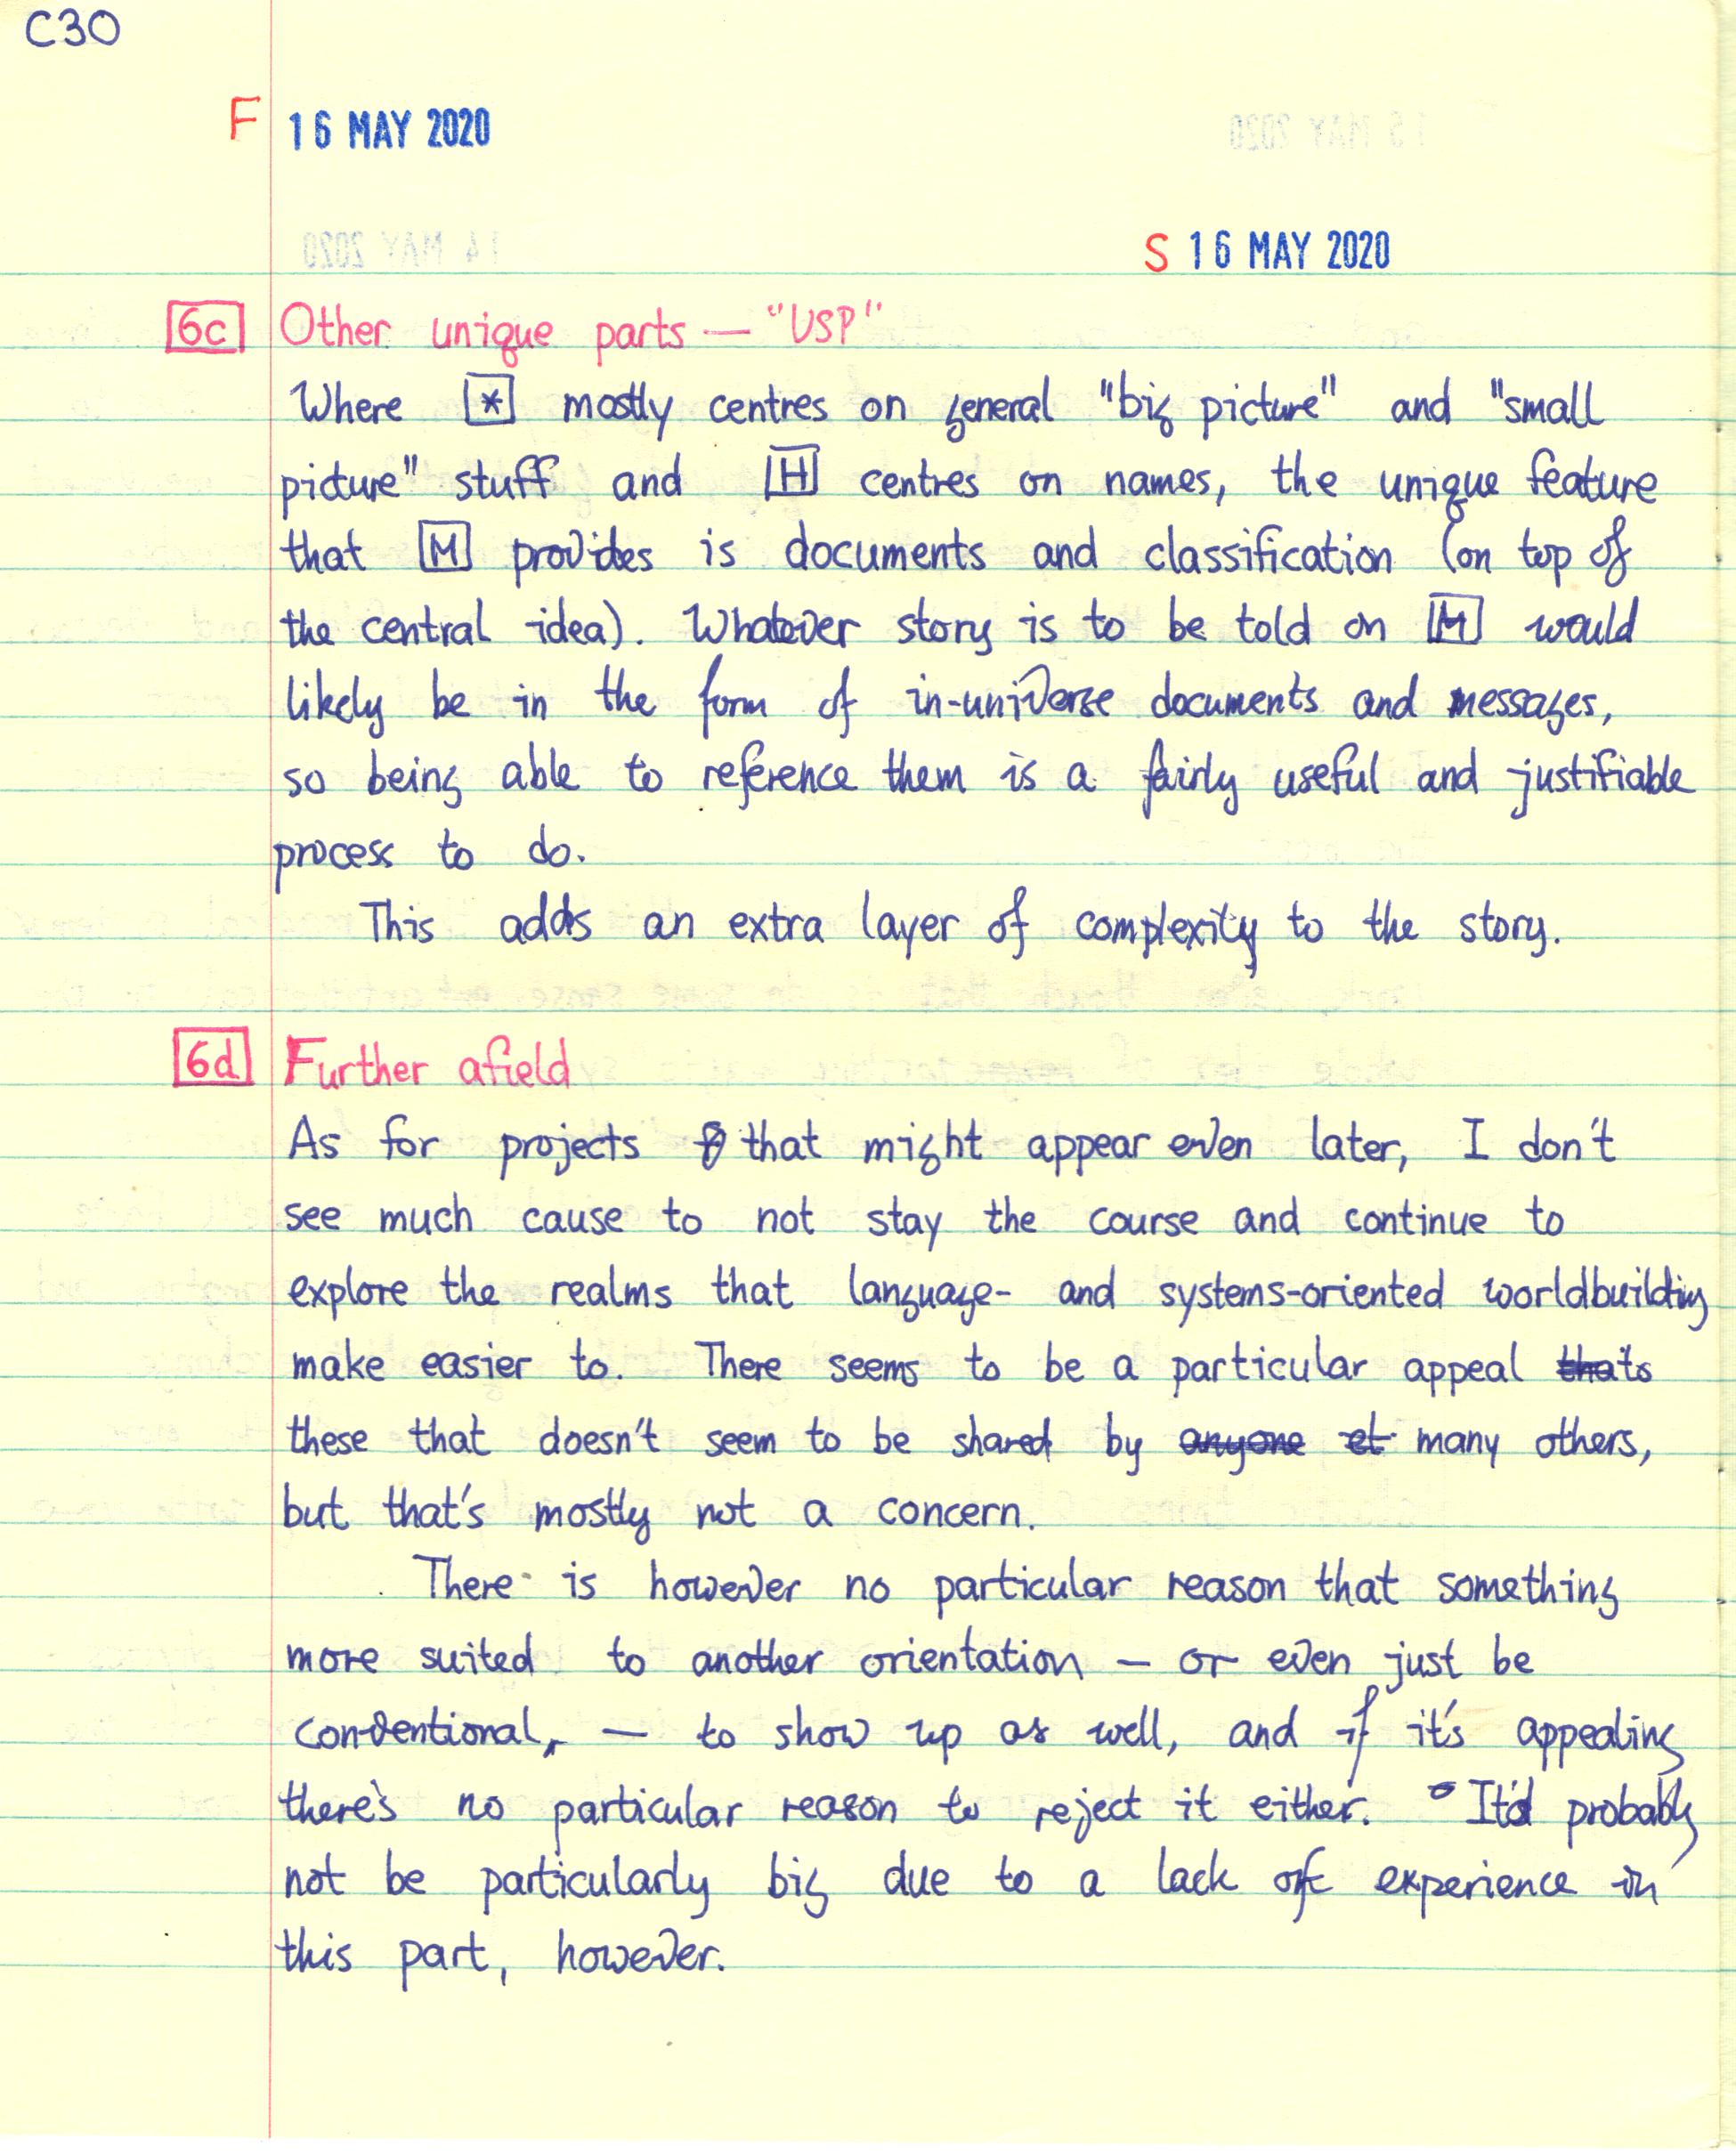 C30
F 16 MAY 2020
15 MAY 2020
14 MAY 2020
S 16 MAY 2020
6c Other unique parts — "USP"
Where [*] mostly centres on general "big picture" and "small
picture" stuff and [H] centres on names, the unique feature
that [M] provides is documents and classification (on top of
the central idea). Whatever story is to be told on [M] would
likely be in the form of in-universe documents and messages,
so being able to reference them is a fairly useful and justifiable
process to do.
This adds an extra layer of complexity to the story.
6d Further afield
As for projects that might appear even later, I don't
see much cause to not stay the course and continue to
explore the realms that language- and systems-oriented worldbuilding
make easier to. There seems to be a particular appeal to
these that doesn't seem to be shared by many others,
but that's mostly not a concern.
There is however no particular reason that something
more suited to another orientation — or even just be
conventional, — to show up as well, and if it's appealing
there's no particular reason to reject it either. It'd probably
not be particularly big due to a lack of experience in
this part, however.